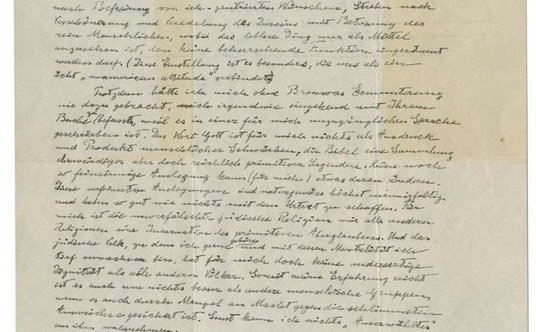 nach Befreiung von ich-zentrierten Wünschen, Streben nach
Verschönerung und Veredelung des Daseins mit Betonung des
rein Menschlichen, wobei das leblose Ding nur als Mittel
anzusehen ist, dem keine beherrschende Funktion eingeräumt
werden darf. (Diese Einstellung ist es besonders, die uns als ein
echt „unamerican attitude" verbindet)
Trotzdem hätte ich mich ohne Brouwers Ermunterung
nie dazu gebracht, mich irgendwie eingehend mit Ihrem
Buche zu befassen, weil es in einer für mich unzugänglichen Sprache
geschrieben ist. Das Wort Gott ist für mich nichts als Ausdruck
und Produkt menschlicher Schwächen, die Bibel eine Sammlung
ehrwürdiger aber doch reichlich primitiver Legenden. Keine noch
so feinsinnige Auslegung kann (für mich) etwas daran ändern.
Diese verfeinerten Auslegungen sind naturgemäss höchst mannigfaltig
und haben so gut wie nichts mit dem Urtext zu schaffen. Für
mich ist die unverfälschte jüdische Religion wie alle anderen
Religionen eine Incarnation des primitiven Aberglaubens. Und das
jüdische Volk, zu dem ich gerne gehöre und mit dessen Mentalität ich
tief verwachsen bin, hat für mich doch keine andersartige
Dignität als alle anderen Völker. Soweit meine Erfahrung reicht
ist es auch um nichts besser als andere menschliche Gruppen
wenn es auch durch Mangel an Macht gegen die schlimmsten
Auswüchse gesichert ist. Sonst kann ich nichts „Auserwähltes"
an ihm wahrnehmen.